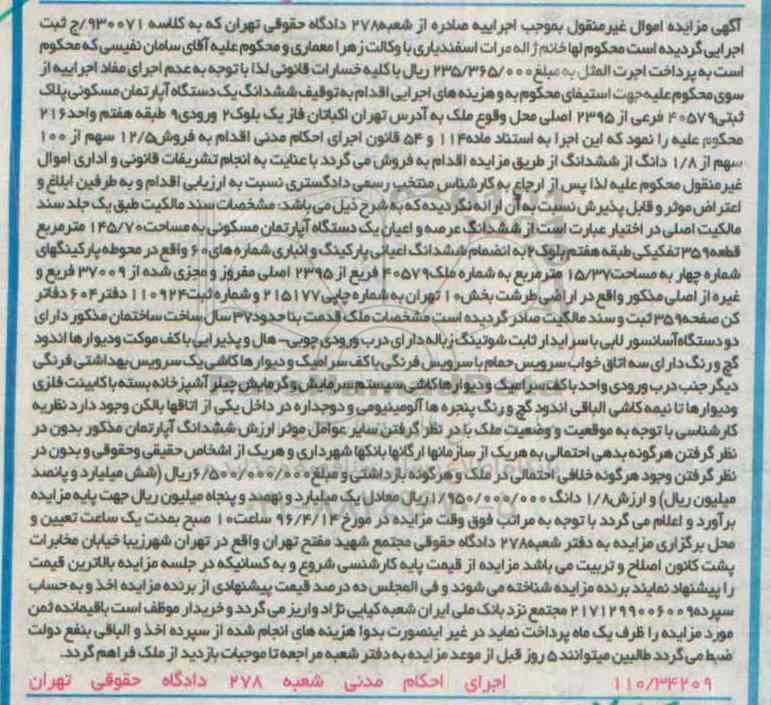 آگهی مزایده اموال غیرمنقول بموجب اجراییه صادره از شعبه۲۷۸ دادگاه حقوقی تهران که به کلاسه ۹۳۰۰۷۱/ج ثبت
اجرایی گردیده است محکوم لها خانم ژاله مرات اسفندیاری با وکالت زهرا معماری و محکوم علیه آقای سامان نفیسی که محکوم
است به پرداخت اجرت المثل به مبلغ ۲۳۵/۳۶۵/۰۰۰ ریال با کلیه خسارات قانونی لذا با توجه به عدم اجرای مفاد اجراییه از
سوی محکوم علیه جهت استیفای محکوم به و هزینه های اجرایی اقدام به توقیف ششدانگ یک دستگاه آپارتمان مسکونی پلاک
ثبتی۴۰۵۷۹ فرعی از ۲۳۹۵ اصلی محل وقوع ملک به آدرس تهران اکباتان فاز یک بلوک۲ ورودی۹ طبقه هفتم واحد۲۱۶
محکوم علیه را نمود که این اجرا به استناد ماده۱۱۴ و ۵۴ قانون اجرای احکام مدنی اقدام به فروش۱۲/۵ سهم از ۱۰۰
سهم از ۱/۸ دانگ از ششدانگ از طریق مزایده اقدام به فروش می گردد با عنایت به انجام تشریفات قانونی و اداری اموال
غیرمنقول محکوم علیه لذا پس از ارجاع به کارشناس منتخب رسمی دادگستری نسبت به ارزیابی اقدام و به طرفین ابلاغ و
اعتراض موثر و قابل پذیرش نسبت به آن ارائه نگردیده که به شرح ذیل می باشد: مشخصات سند مالکیت طبق یک جلد سند
مالکیت اصلی در اختیار عبارت است از ششدانگ عرصه و اعیان یک دستگاه آپارتمان مسکونی به مساحت۱۴۵/۷۰ مترمربع
قطعه۳۵۹ تفکیکی طبقه هفتم بلوک۲ به انضمام ششدانگ اعیانی پارکینگ و انباری شماره های۶۰ واقع در محوطه پارکینگهای
شماره چهار به مساحت۱۵/۳۷ مترمربع به شماره ملک۴۰۵۷۹ فریع از ۲۳۹۵ اصلی مفروز و مجزی شده از ۳۷۰۰۹ فریع و
غیره از اصلی مذکور واقع در اراضی طرشت بخش۱۰ تهران به شماره چاپی۲۱۵۱۷۷ و شماره ثبت۱۱۰۹۲۴ دفتر۶۰۴ دفاتر
کن صفحه۳۵۹ ثبت و سند مالکیت صادر گردیده است مشخصات ملک قدمت بنا حدود۳۷ سال ساخت ساختمان مذکور دارای
دو دستگاه آسانسور لابی با سرایدار ثابت شوتینگ زباله دارای درب ورودی چوبی- هال و پذیرایی با کف موکت ودیوارها اندود
گچ و رنگ دارای سه اتاق خواب سرویس حمام با سرویس فرنگی با کف سرامیک و دیوارها کاشی یک سرویس بهداشتی فرنگی
دیگر جنب درب ورودی واحد با کف سرامیک و دیوارها کاشی سیستم سرمایش و گرمایش چیلر آشپزخانه بسته با کابینت فلزی
ودیوارها تا نیمه کاشی الباقی اندود گچ و رنگ پنجره ها آلومینیومی و دوجداره در داخل یکی از اتاقها بالکن وجود دارد نظریه
کارشناسی با توجه به موقعیت و وضعیت ملک با در نظر گرفتن سایر عوامل موثر ارزش ششدانگ آپارتمان مذکور بدون در
نظر گرفتن هرگونه بدهی احتمالی به هریک از سازمانها ارگانها بانکها شهرداری و هریک از اشخاص حقیقی وحقوقی و بدون در
نظر گرفتن وجود هرگونه خلافی احتمالی در ملک و هرگونه بازداشتی و مبلغ۶/۵۰۰/۰۰۰/۰۰۰ریال (شش میلیارد و پانصد
میلیون ریال) و ارزش۱/۸ دانگ ۱/۹۵۰/۰۰۰/۰۰۰ریال معادل یک میلیارد و نهصد و پنجاه میلیون ریال جهت پایه مزایده
برآورد و اعلام می گردد با توجه به مراتب فوق وقت مزایده در مورخ ۹۶/۴/۱۴ ساعت۱۰ صبح بمدت یک ساعت تعیین و
محل برگزاری مزایده به دفتر شعبه۲۷۸ دادگاه حقوقی مجتمع شهید مفتح تهران واقع در تهران شهرزیبا خیابان مخابرات
پشت کانون اصلاح و تربیت می باشد مزایده از قیمت پایه کارشنسی شروع و به کسانیکه در جلسه مزایده بالاترین قیمت
را پیشنهاد نمایند برنده مزایده شناخته می شوند و فی المجلس ده درصد قیمت پیشنهادی از برنده مزایده اخذ و به حساب
سپرده۲۱۷۱۲۹۹۰۰۶۰۰۹ مجتمع نزد بانک ملی ایران شعبه کیایی نژاد واریز می گردد و خریدار موظف است باقیمانده ثمن
مورد مزایده را ظرف یک ماه پرداخت نماید در غیر اینصورت بدوا هزینه های انجام شده از سپرده اخذ و الباقی بنفع دولت
ضبط می گردد طالبین میتوانند ۵ روز قبل از موعد مزایده به دفتر شعبه مراجعه تا موجبات بازدید از ملک فراهم گردد.
۱۱۰/۳۴۲۰۹ اجرای احکام مدنی شعبه ۲۷۸ دادگاه حقوقی تهران